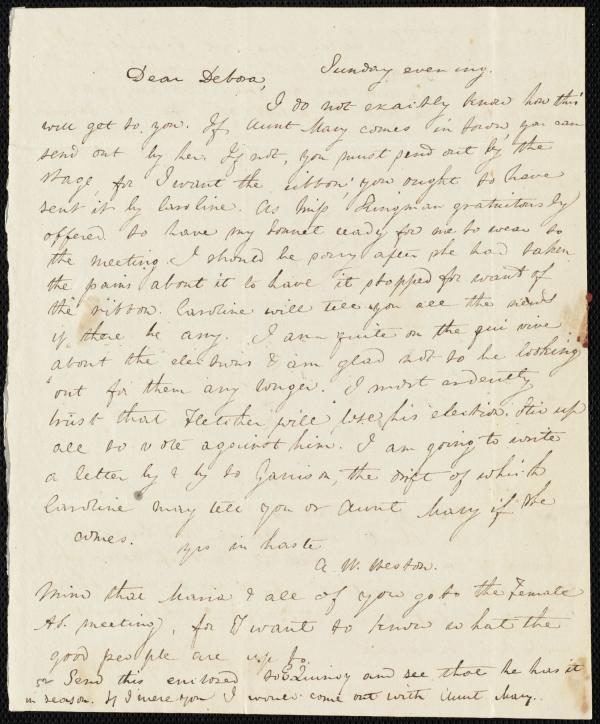 Dear Debora, Sunday evening.
I do not exactly know how this
will get to you. If Aunt Mary comes in town, you can
send out by her. If not, you must send out by the
stage, for I want the ribbon; you ought to have
sent it by Caroline. As Miss Kingman gratuitously
offered to have my bonnet ready for me to wear to
the meeting I should be sorry after she had taken
the pains about it to have it stopped for want of
the ribbon. Caroline will tell you all the news
if there be any. I am quite on the qui vive
about the elections & am glad not to be "looking
out for them any longer." I most ardently
trust that Fletcher will lose his election. Stir up
all to vote against him. I am going to write
a letter by & by to Garrison, the drift of which
Caroline may tell you or Aunt Mary if she
comes.
yrs in haste
A. W. Weston.
Mind that Maria & all of you go to the Female
AS. meeting, for I want to know what the
good people are up to.
Send this enclosed to Quincy and see that he has it
in season. If I were you I would come out with Aunt Mary.